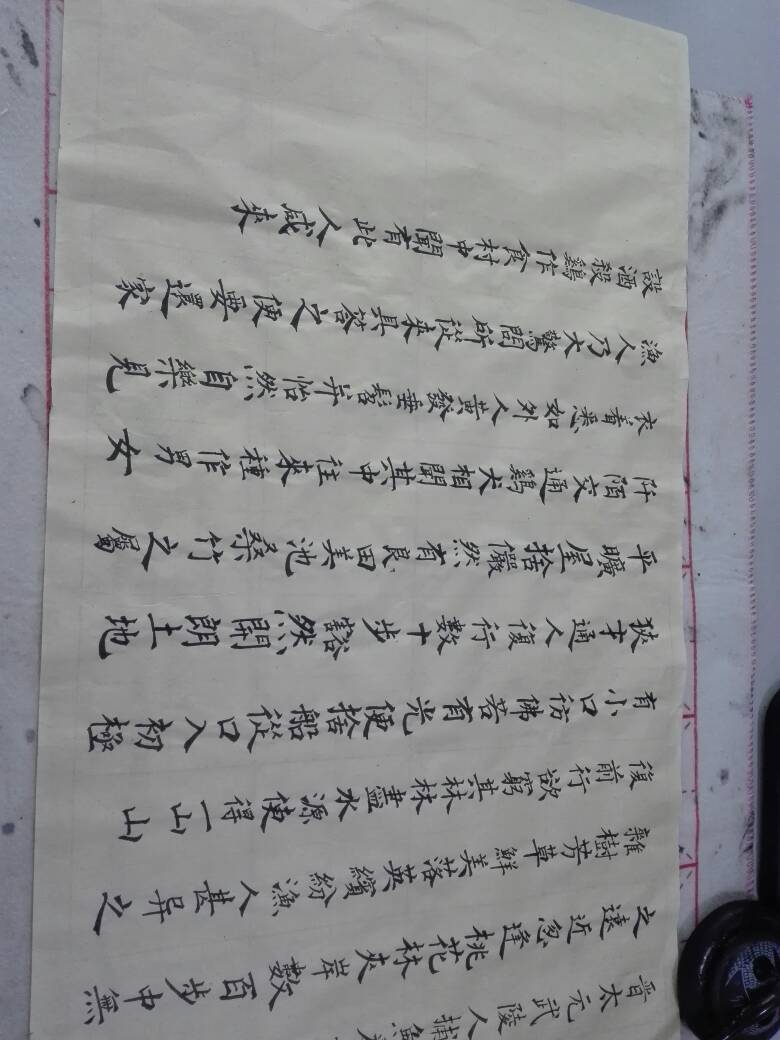 晉太元武陵人捕魚
之遠近忽逢桃花林夾岸數百步中無
雜樹芳草鮮美落英繽紛漁人甚異之
後前行欲窮其林林盡水源便得一山山
有小口彷佛若有光便捨船從口入初極
狹才通人復行數十步豁然開朗土地
平曠屋捨儼然有良田美池桑竹之屬
阡陌交通鷄犬相聞其中往來種作男女
衣着悉如外人黃發垂髫并怡然自樂見
漁人乃大驚問所從来具答之便要還家
設酒殺鷄作食村中聞有此人咸來